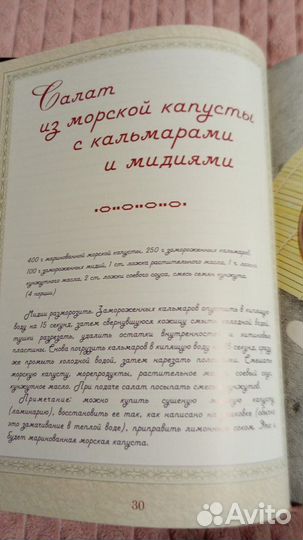 Салат
из морской капусты
с кальмарами
и мидиями
400 г маринованной морской капусты, 250 г замороженных кальмаров,
100 г замороженных мидий, 1 ст. ложка растительного масла, 1 ч. ложка
кунжутного масла, 2 ст. ложки соевого соуса, смесь семян кунжута
(4 порции)
Мидии разморозить. Замороженных кальмаров опустить в кипящую
воду на 15 секунд, затем свернувшуюся кожицу смыть холодной водой,
тушки разрезать, удалить остатки внутренностей и хитиновые
пластины. Снова погрузить кальмаров в кипящую воду на 15 секунд, сразу
же промыть холодной водой, затем нарезать Смешать
морскую капусту, морепродукты, растительное масло, соевый соус,
кунжутное масло. При подаче салат посыпать кунжутов.
Примечание: можно купить сушеную морскую капусту
(ламинарию), восстановить ее так, как написано на упаковке (обычно
это замачивание в теплой воде), приправить лимонным соком. Это и
будет маринованная морская капуста.
30
Avito